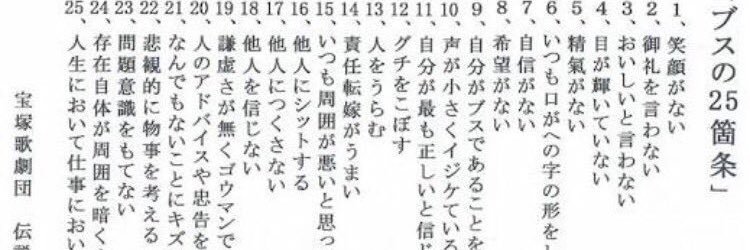 ブスの25箇条」
1、笑顔がない
2、御礼を言わない
3、おいしいと言わない
4、目が輝いていない
5、精氣がない
6、いつも口がへの字の形をし
7、自信がない
8、希望がない
9、自分がブスであることを
10、声が小さくイジケている
11、自分が最も正しいと信じ
12、グチをこぼす
13、人をうらむ
14、責任転嫁がうまい
15、いつも周囲が悪いと思っ
16、他人にシットする
17、他人につくさない
18、他人を信じない
19、謙虚さが無くゴウマンで
20、人のアドバイスや忠告を
21、なんでもないことにキズ
22、悲観的に物事を考える
23、問題意識をもてない
24、存在自体が周囲を暗く
25、人生において仕事におい
宝塚歌劇団 伝説